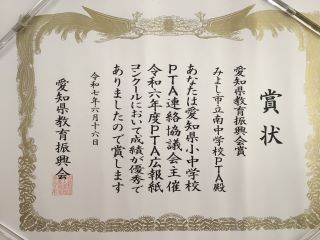 賞状
愛知県教育振興会賞
みよし市立南中学校PTA殿
あなたは愛知県小中学校
PTA連絡協議会主催
令和六年度PTA広報紙
コンクールにおいて成績が優秀で
ありましたので賞します
令和七年六月十六日
愛知県教育振興会